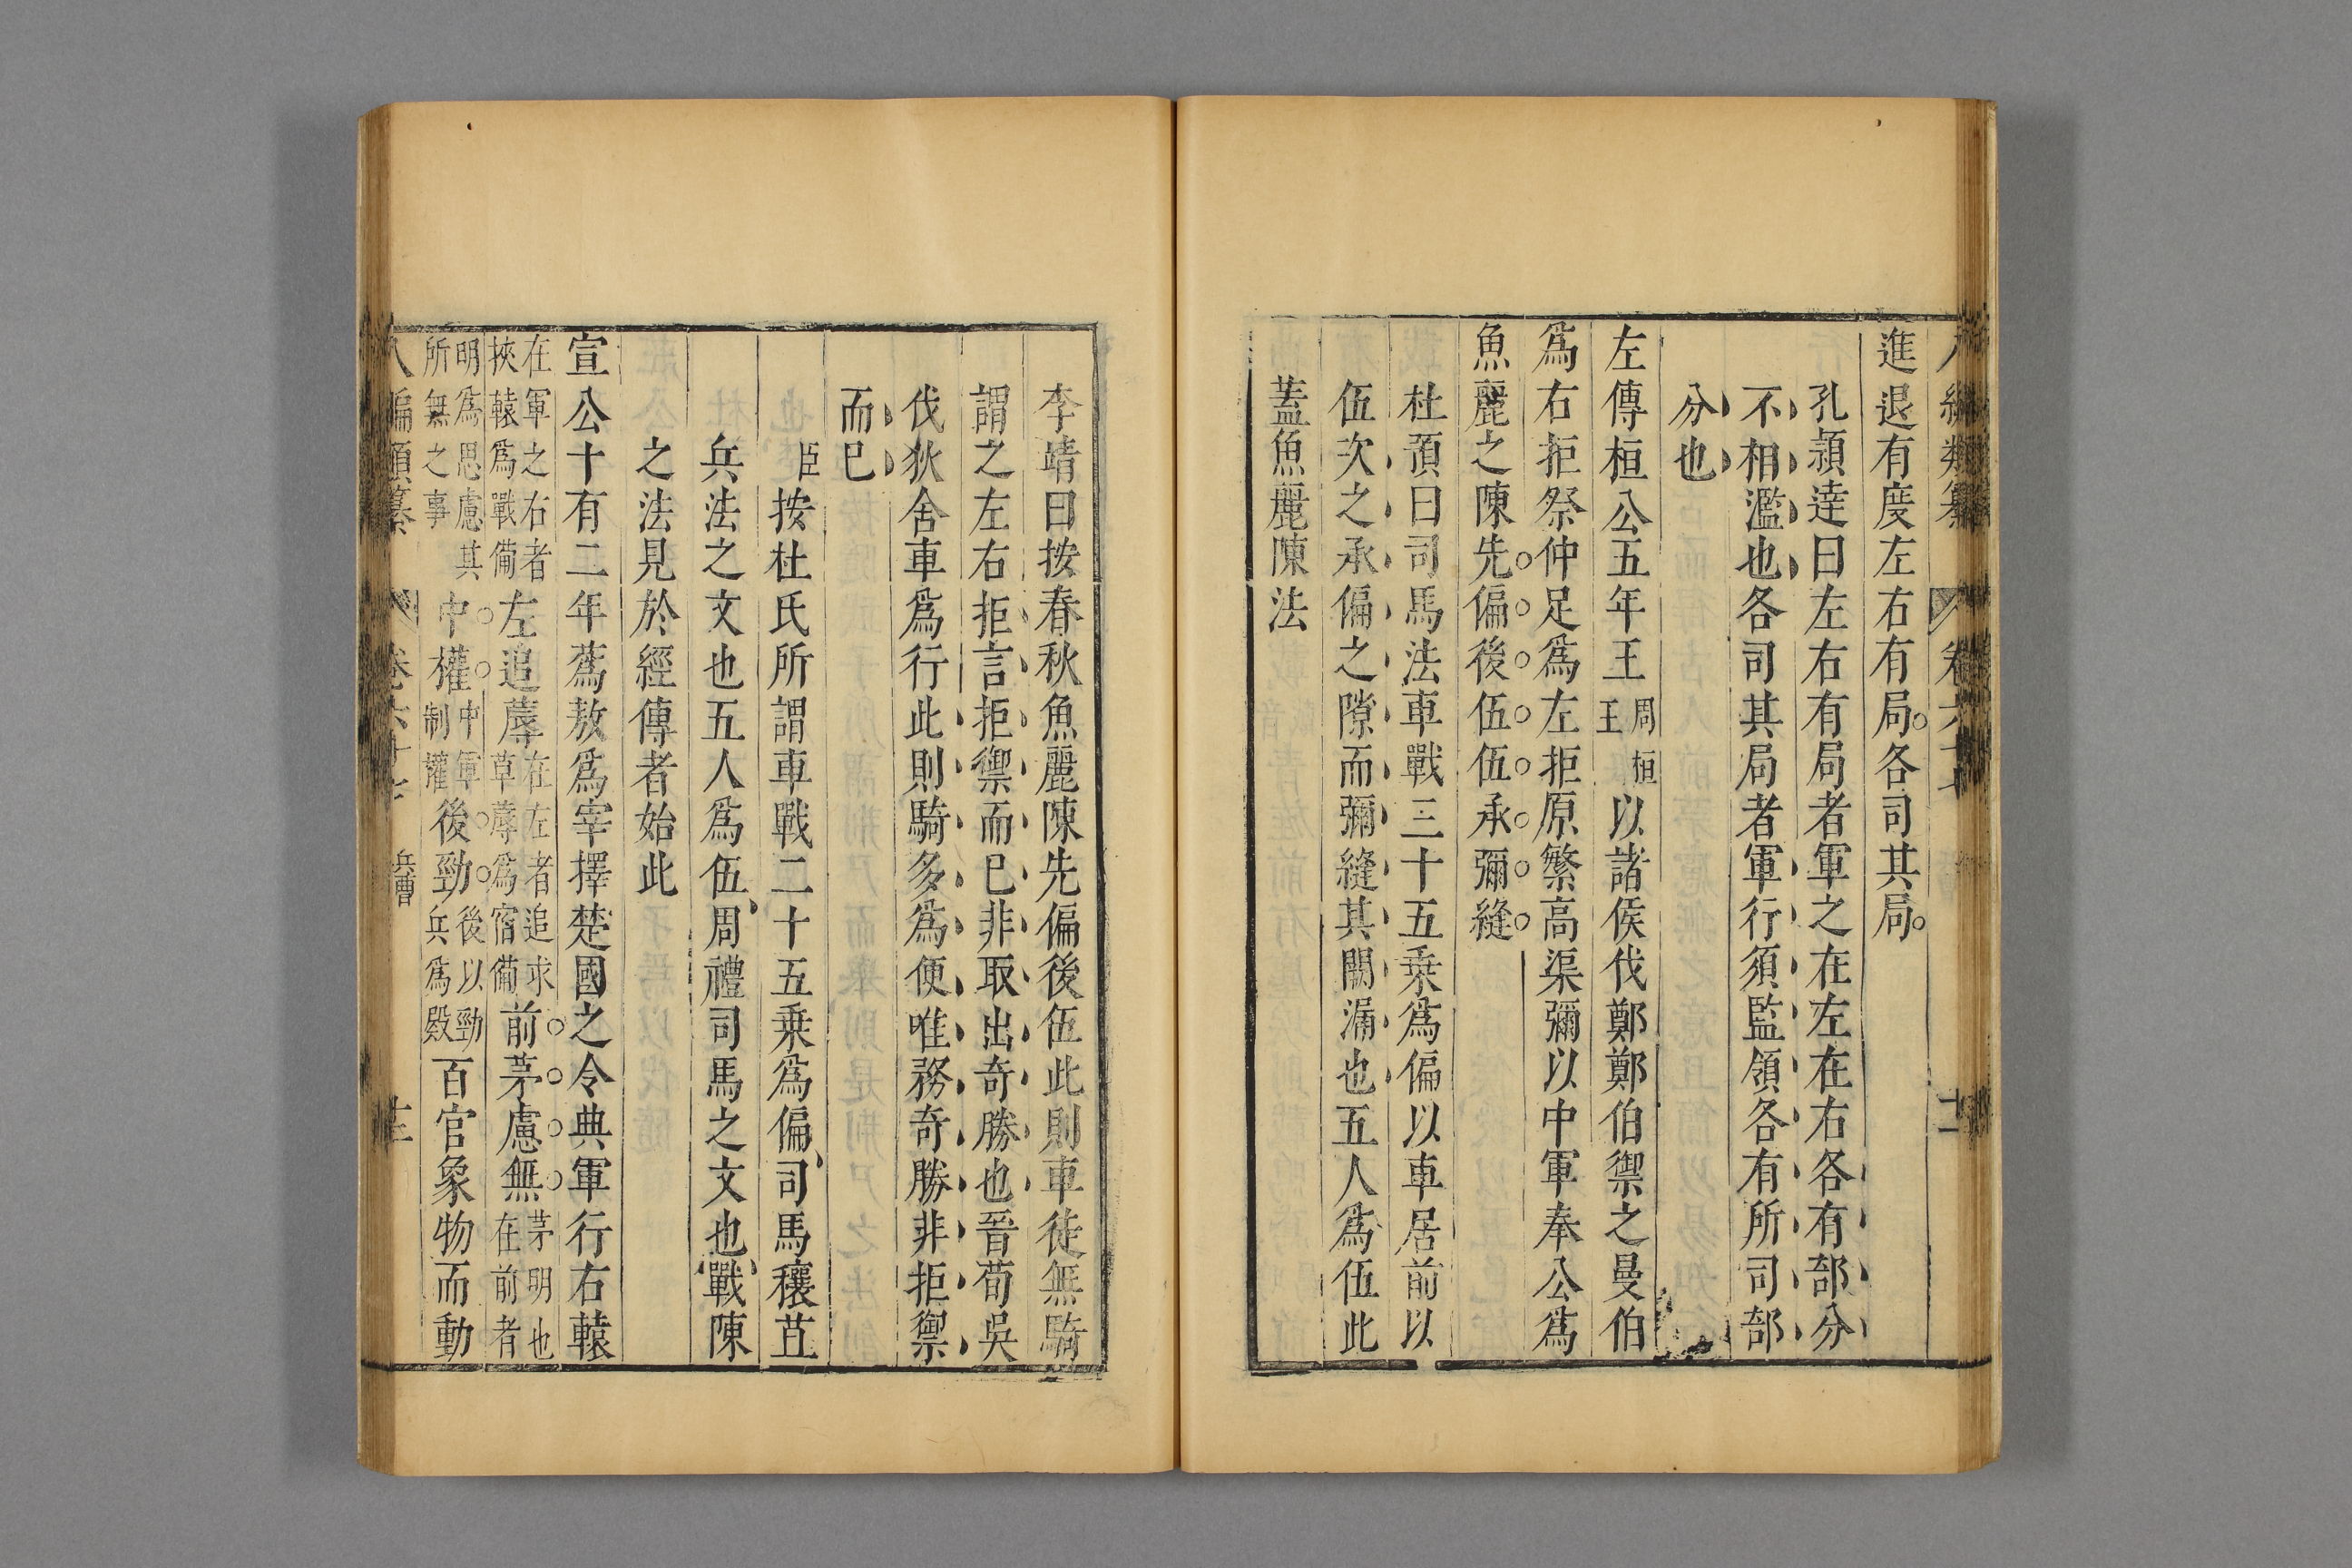 進退有度左右有局各司其局
孔頴逹曰左右有局者軍之在左在右各有部分
不相濫也各司其局者軍行須監領各有所司部
分也
左傳桓公五年王周桓王以諸侯伐鄭鄭伯禦之曼伯
爲右拒祭仲足爲左拒原繁高渠彌以中軍奉公爲
魚麗之陳先偏後伍伍承彌縫
杜預曰司馬法車戰三十五乗爲偏以車居前以
伍次之承偏之隙而彌縫其闕漏也五人爲伍此
葢魚麗陳法
李靖曰按春秋魚麗陳先偏後伍此則車徒無騎
謂之左右拒言拒禦而巳非取出奇勝也晉荀吳
伐狄舍車爲行此則騎多爲便唯務奇勝非拒禦
而巳
臣按杜氏所謂車戰二十五乗爲偏司馬穰苴
兵法之文也五人爲伍周禮司馬之文也戰陳
之法見於經傳者始此
宣公十有二年蔿敖爲宰擇楚國之令典軍行右轅
在軍之右者挾轅爲戰備左追蓐在左者追求草蓐爲宿備前茅慮無茅明也在前者
明爲思慮其所無之事中權中軍制權後勁後以勁兵爲殿百官象物而動
八編類纂
卷六十七
兵曹